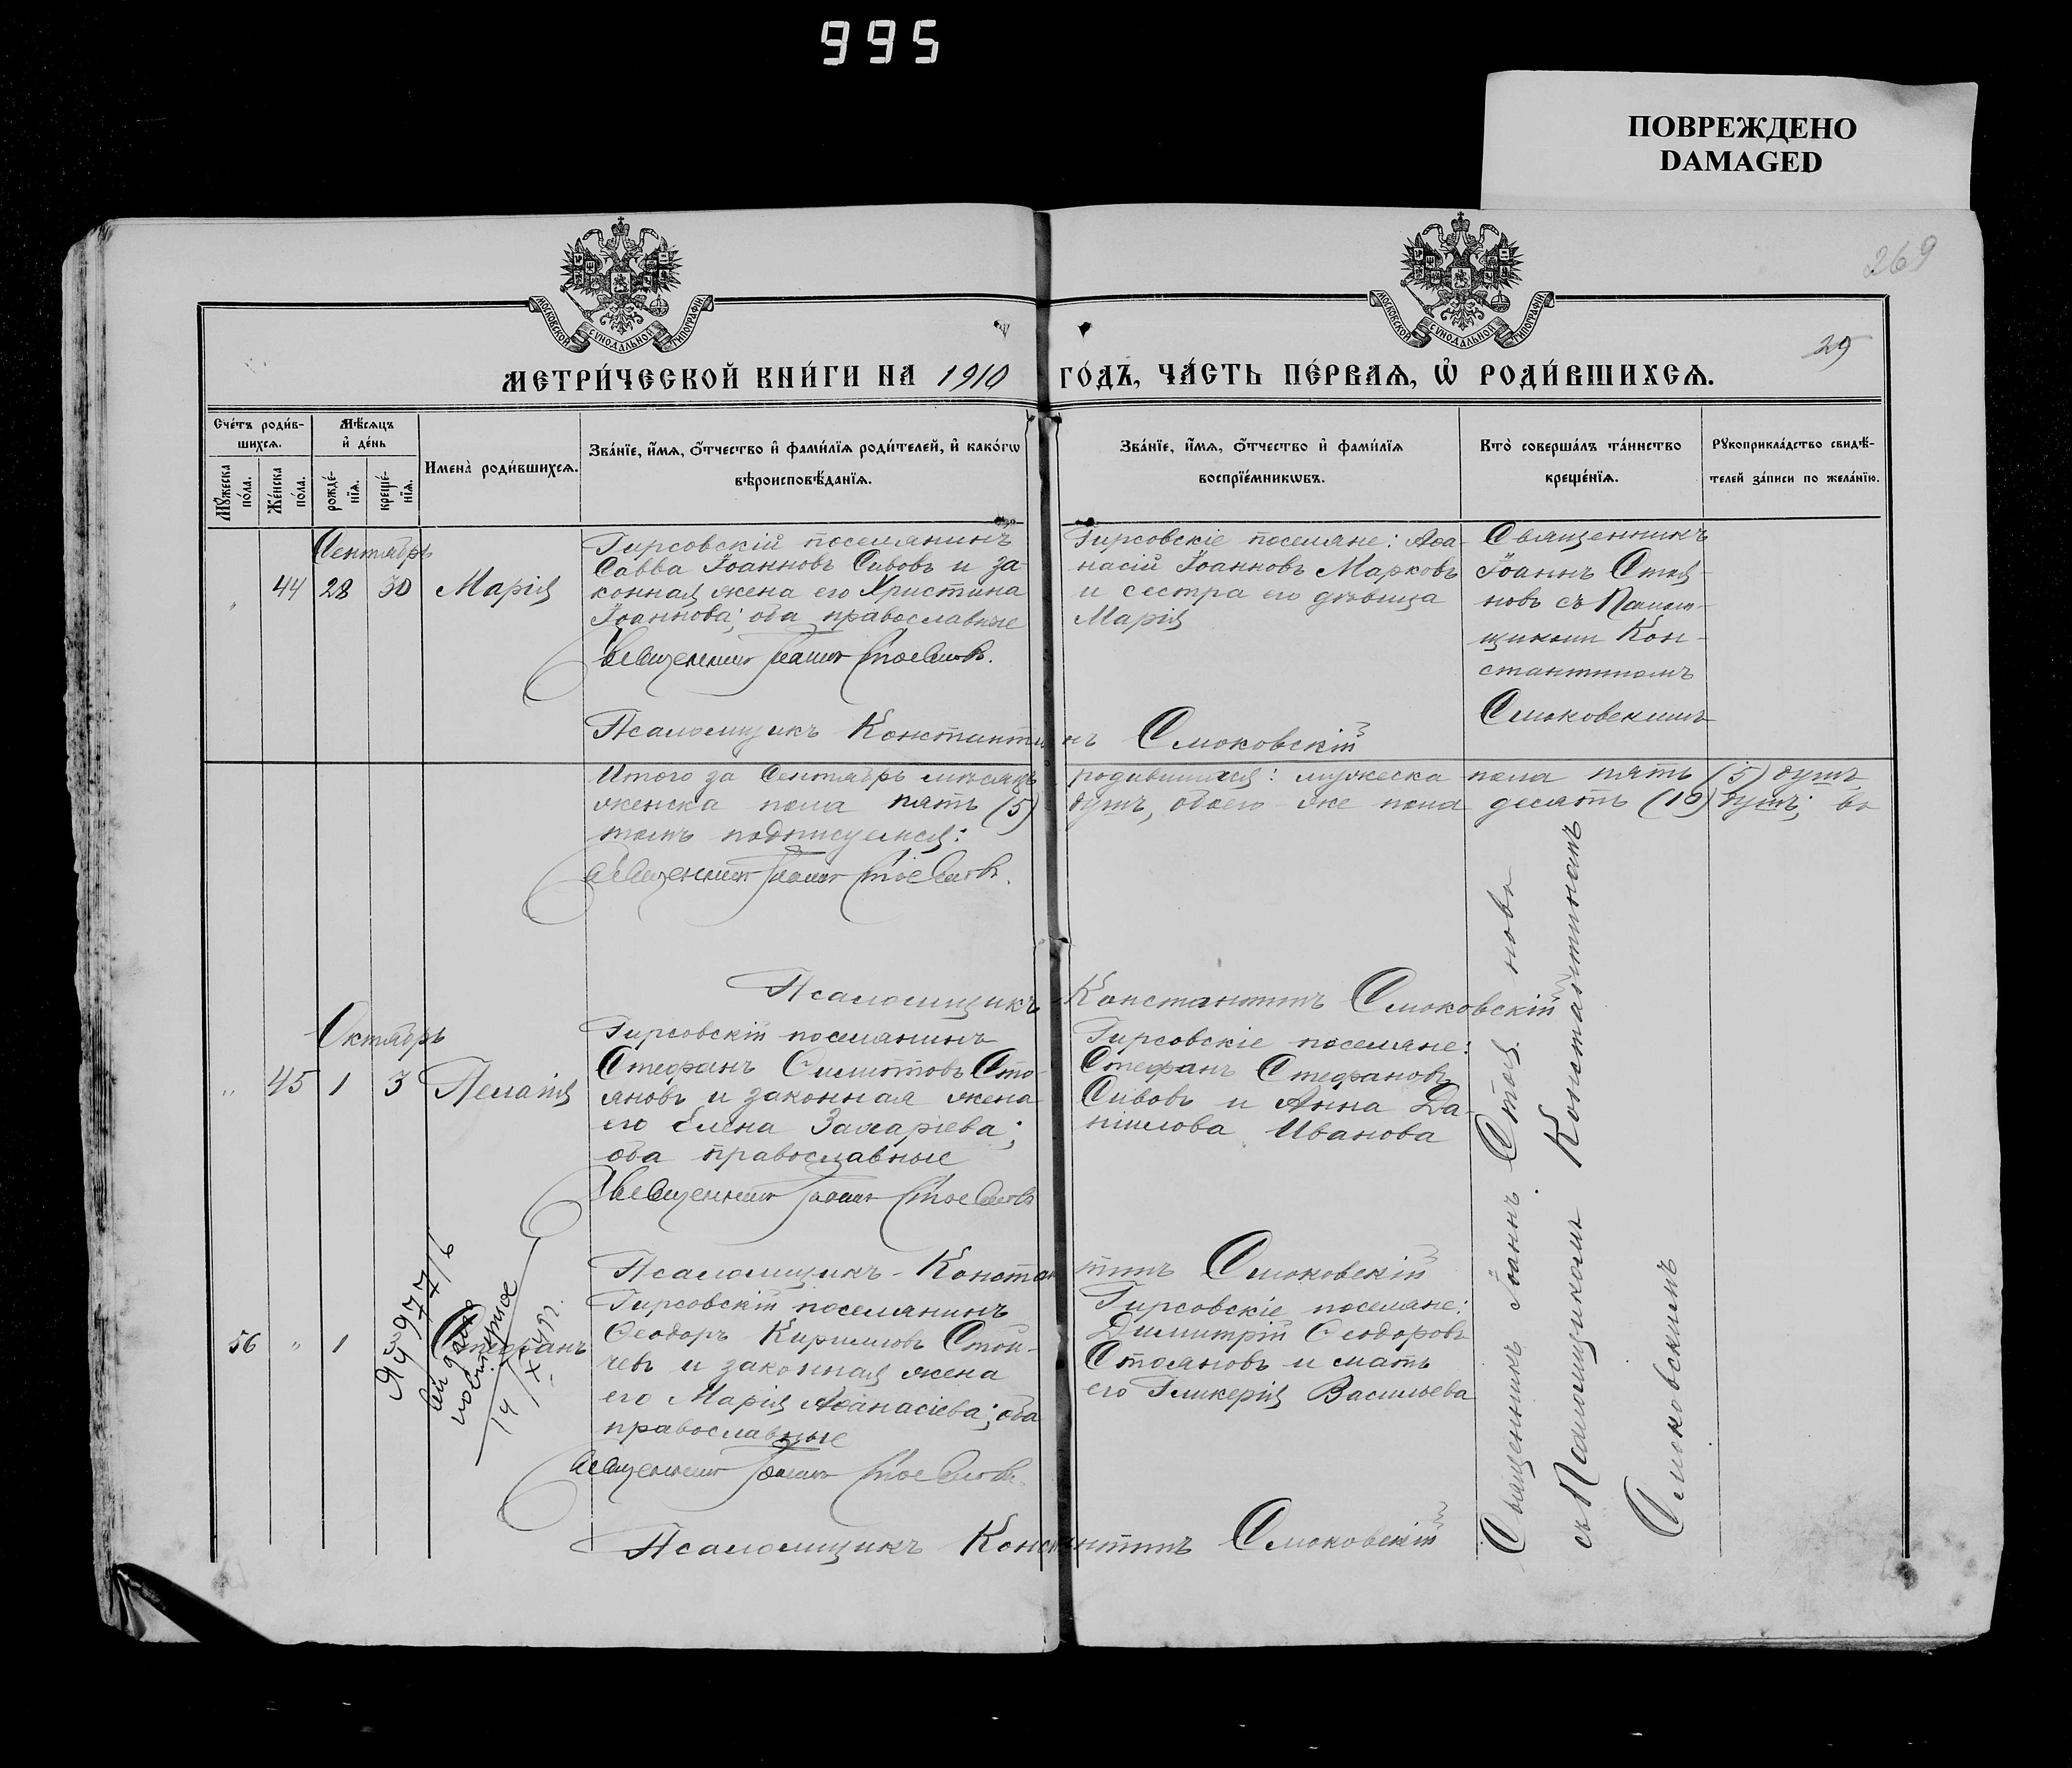 995
ПОВРЕЖДЕНО
DAMAGED
269
29
МОСКОВСКОЙ СѴНОДАЛЬНОЙ ТИПОГРАФІИ
МОСКОВСКОЙ СѴНОДАЛЬНОЙ ТИПОГРАФІИ
МЕТРИ́ЧЕСКОЙ КНИ́ГИ НА 1910 ГО́ДЪ, ЧА́СТЬ ПЕ́РВАѦ, Ѡ҆ РОДИ́ВШИХСѦ.
Сче́тъ роди́в-
шихсѧ.
Мѣ́сѧцъ
и҆ де́нь
Мꙋ́жеска
по́ла.
Же́нска
по́ла.
рожде́-
нїѧ.
креще́-
нїѧ.
Имена̀ роди́вшихсѧ.
Зва́нїе, и҆́мѧ, ѻ҆́тчество и҆ фами́лїѧ роди́телей, и҆ како́гѡ
вѣроисповѣ́данїѧ.
Зва́нїе, и҆́мѧ, ѻ҆́тчество и҆ фами́лїѧ
воспрїе́мникѡвъ.
Кто̀ соверша́лъ та́инство
креще́нїѧ.
Рꙋкоприкла́дство свидѣ́-
телей за́писи по жела́нїю.
Сентябрь
„ 44 28 30 Марія
Гирсовскій поселянинъ
Савва Іоанновъ Сивовъ и за-
конная жена его Христина
Іоаннова; оба православные
Священникъ Іоаннъ Стояновъ.
Псаломщикъ Константинъ Смоковскій
Гирсовскіе поселяне: Аѳа-
насій Іоанновъ Марковъ
и сестра его дѣвица
Марія
Священникъ
Іоаннъ Стоя-
новъ съ Псалом-
щикомъ Кон-
стантиномъ
Смоковскимъ
Итого за Сентябрь мѣсяцъ родившихся: мужеска пола пять (5) душъ
женска пола пять (5) душъ, обоего же пола десять (10) душъ; въ
томъ подписуемся:
Священникъ Іоаннъ Стояновъ.
Псаломщикъ Константинъ Смоковскій
Октябрь
„ 45 1 3 Пелагія
Гирсовскій поселянинъ
Стефанъ Сто-
яновъ и законная жена
его Елена Захаріева;
оба православные
Священникъ Іоаннъ Стояновъ
Псаломщикъ Константинъ Смоковскій
Гирсовскіе поселяне:
Стефанъ Стефановъ
Сивовъ и Анна Да-
ніилова Иванова
56 „ 1 3 Стефанъ
Гирсовскій поселянинъ
Ѳеодоръ Кирилловъ Стой-
чевъ и законная жена
его Марія Аѳанасіева; оба
православные
Священникъ Іоаннъ Стояновъ.
Псаломщикъ Константинъ Смоковскій
Гирсовскіе поселяне:
Димитрій Ѳеодоровъ
Стояновъ и мать
его Гликерія Васильева
Священникъ Іоаннъ Стояновъ
съ Псаломщикомъ Константиномъ
Смоковскимъ